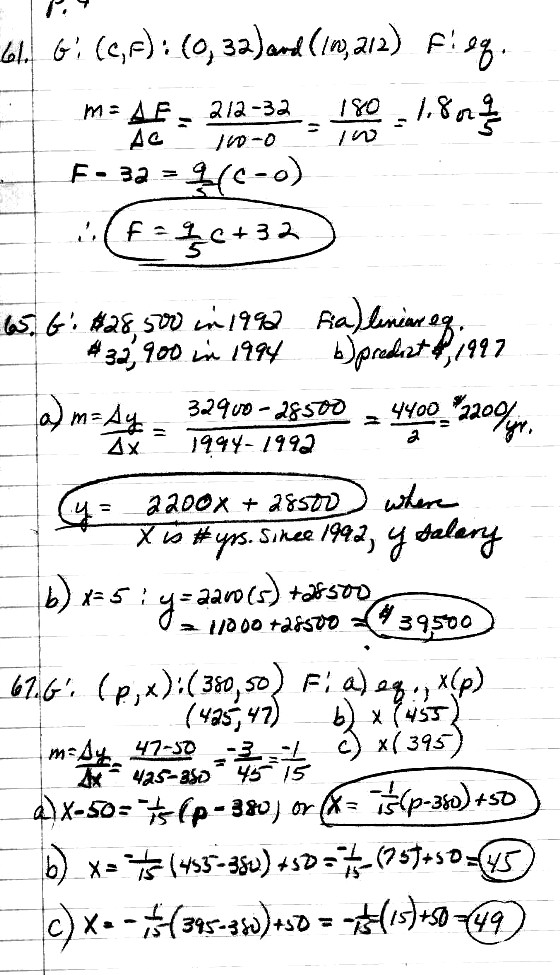 P. 9
61. G: (C,F): (0, 32) and (100, 212) F: eq.
m = ΔF/ΔC = (212-32)/(100-0) = 180/100 = 1.8 or 9/5
F - 32 = 9/5 (C - 0)
∴ F = 9/5 C + 32
65. G: $28,500 in 1992 F: a) linear eq.
$32,900 in 1994 b) predict $, 1997
a) m = Δy/Δx = (32900 - 28500)/(1994 - 1992) = 4400/2 = $2200/yr.
y = 2200x + 28500 where
x is # yrs. since 1992, y salary
b) x = 5 : y = 2200(5) + 28500
= 11000 + 28500 = $39,500
67. G: (p, x): (380, 50) F: a) eq., x(p)
(425, 47) b) x(455)
c) x(395)
m = Δy/Δx = (47-50)/(425-380) = -3/45 = -1/15
a) x - 50 = -1/15 (p - 380) or x = -1/15 (p - 380) + 50
b) x = -1/15 (455 - 380) + 50 = -1/15 (75) + 50 = 45
c) x = -1/15 (395 - 380) + 50 = -1/15 (15) + 50 = 49